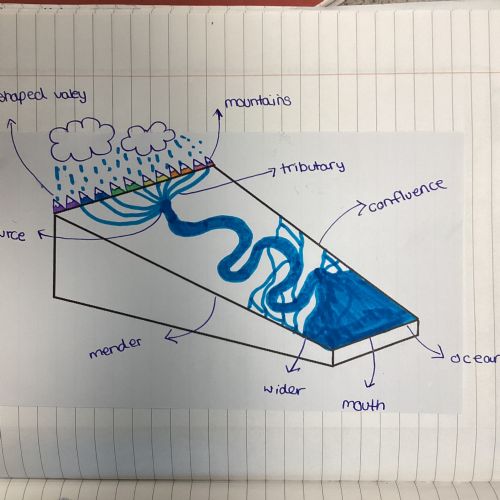 shaped valey
mountains
tributary
confluence
urce
mender
ocean
wider
mouth